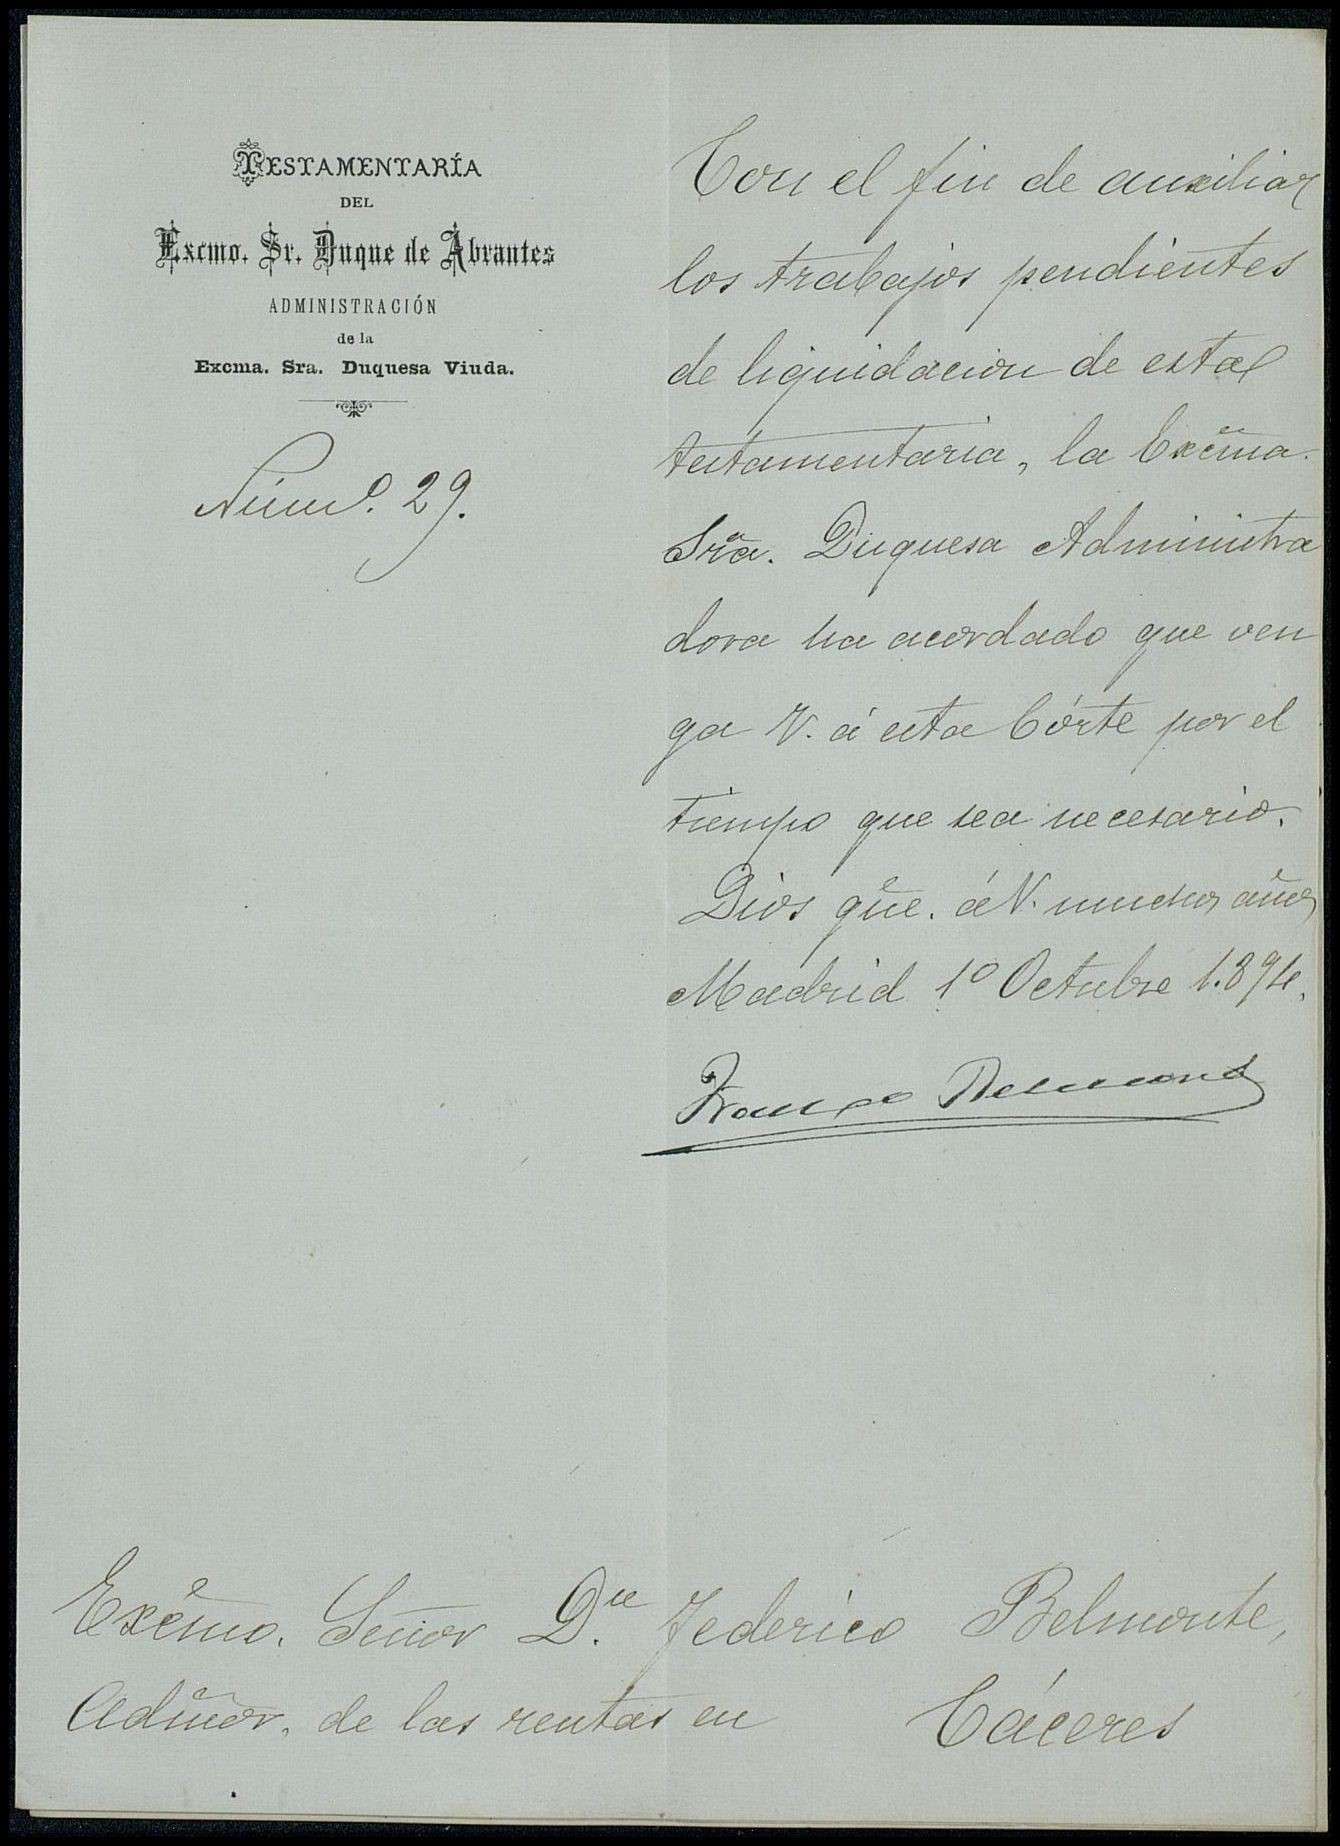 TESTAMENTARÍA
DEL
Excmo. Sr. Duque de Abrantes
ADMINISTRACIÓN
de la
Excma. Sra. Duquesa Viuda.
Núm.º 29.
Con el fin de auxiliar
los trabajos pendientes
de liquidacion de esta
testamentaria, la Excma.
Sra. Duquesa Administra
dora ha acordado que ven
ga V. á esta Córte por el
tiempo que sea necesario.
Dios gue. á V. muchos años
Madrid 1º Octubre 1.894.
Excmo. Señor Dn. Federico Belmonte,
Admor. de las rentas en Cáceres